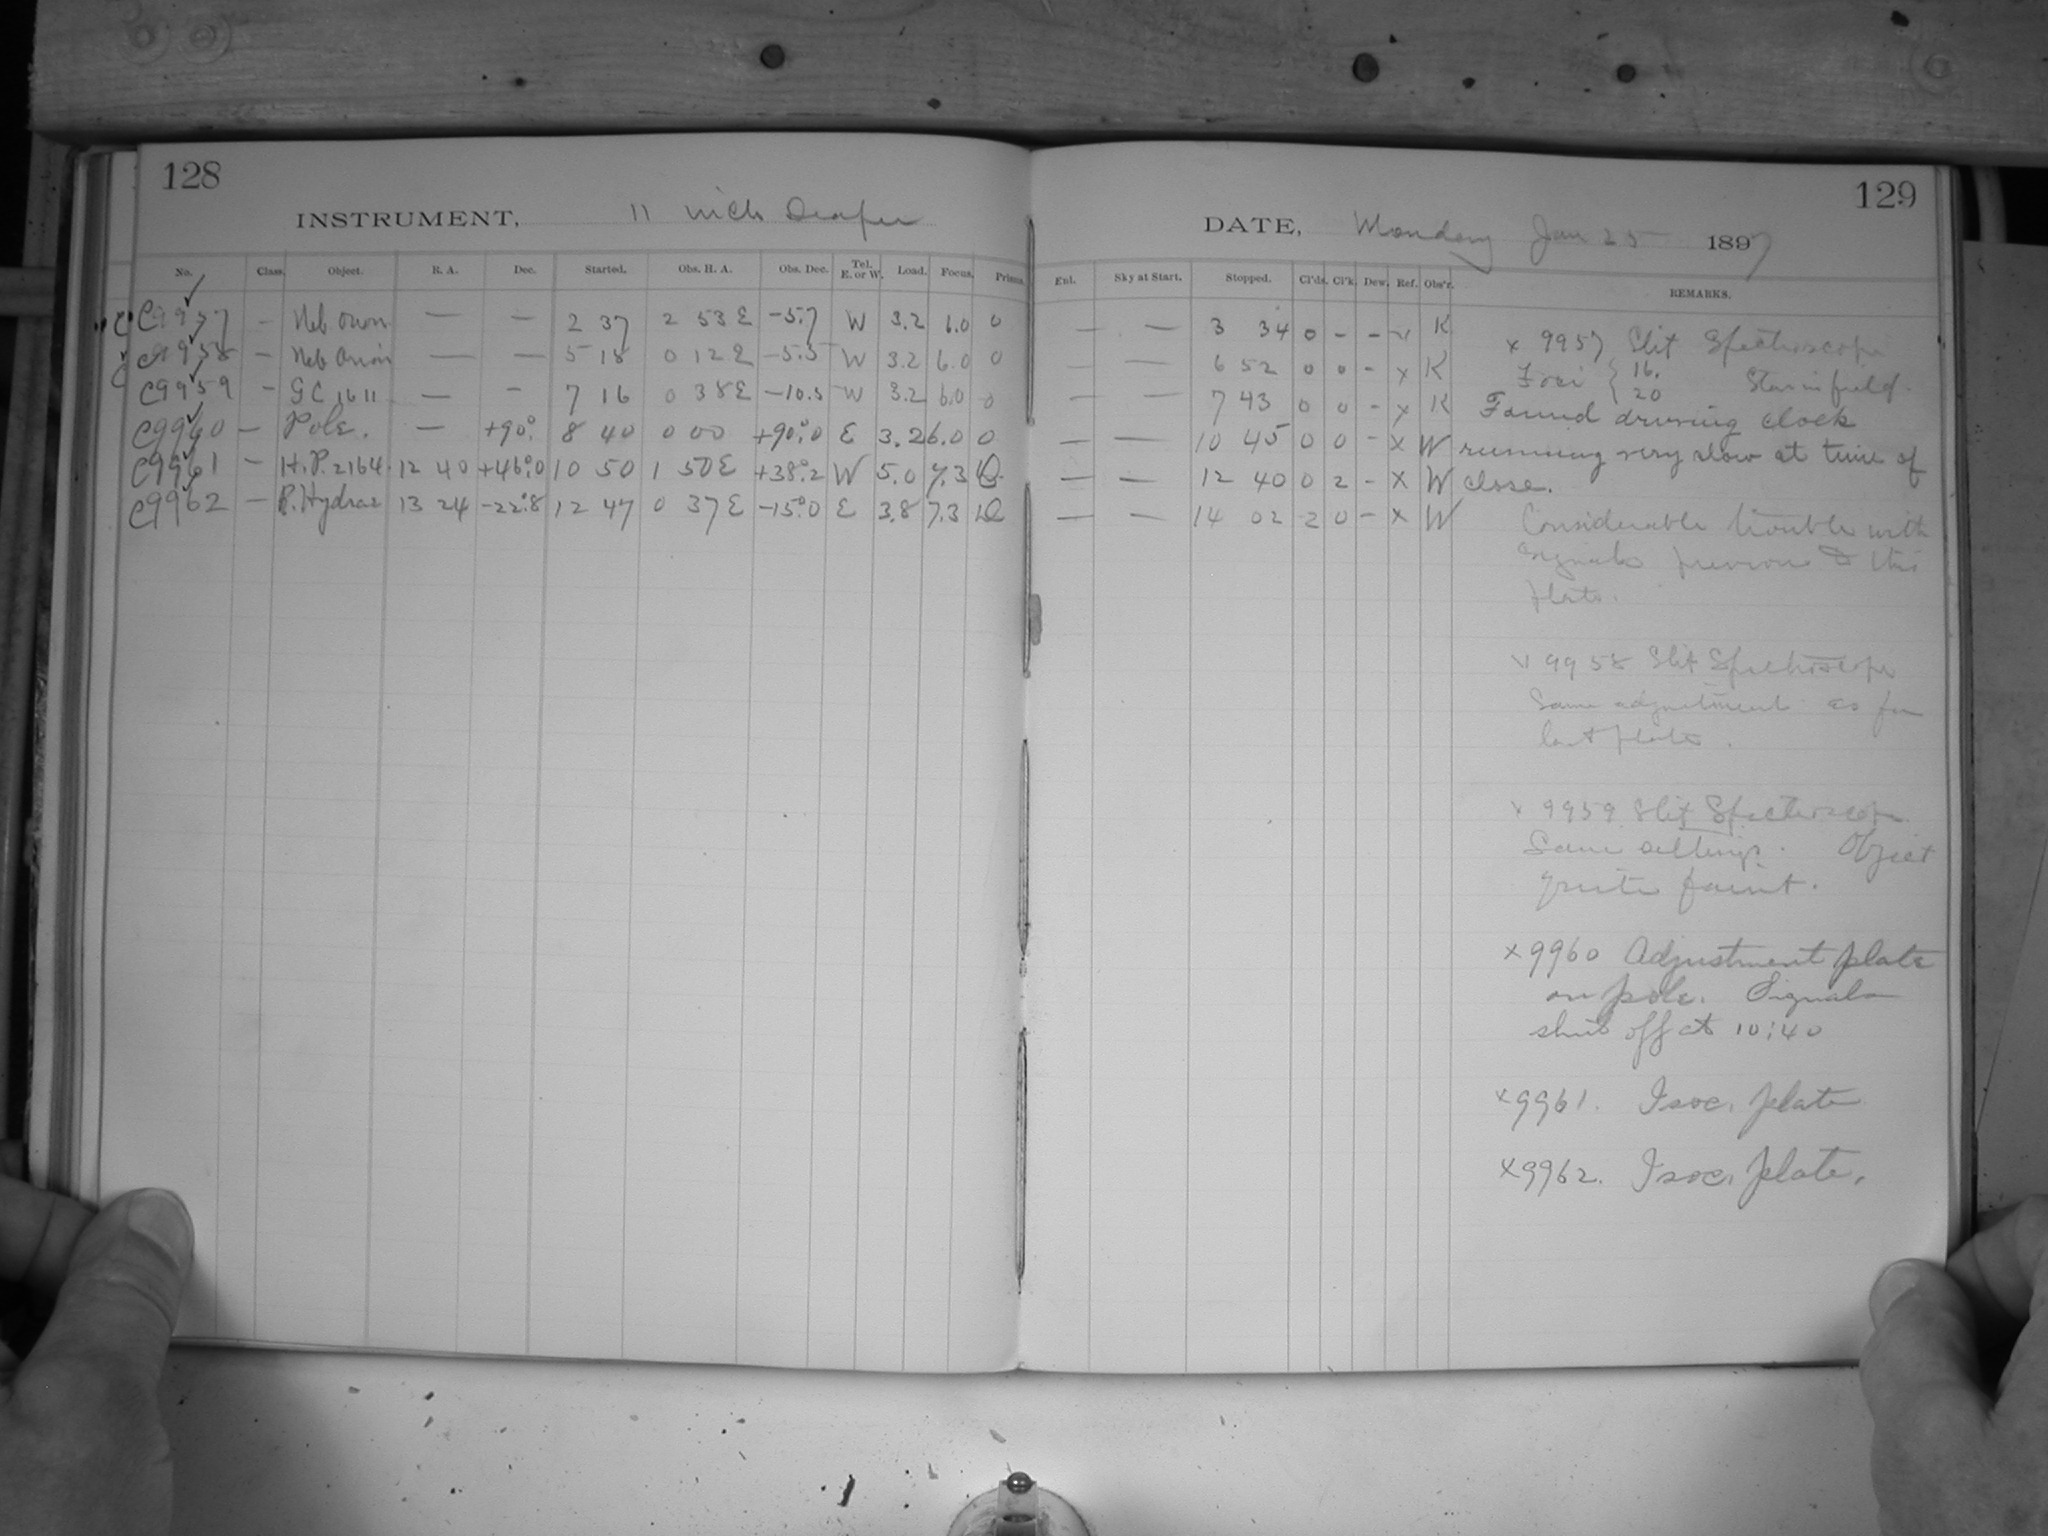 128
INSTRUMENT, 11 inch Draper
No. Class. Object. R. A. Dec. Started. Obs. H. A. Obs. Dec. Tel. E. or W. Load. Focus. Prisms.
C9957 — Neb Orion — — 2 37 2 53 E −5.7 W 3.2 6.0 0
C9958 — Neb Orion — — 5 18 0 12 E −5.5 W 3.2 6.0 0
C9959 — GC 1611 — — 7 16 0 38 E −10.5 W 3.2 6.0 0
C9960 — Pole. — +90° 8 40 0 00 +90°.0 E 3.2 6.0 0
C9961 — H.P. 2164 12 40 +46°.0 10 50 1 50 E +38°.2 W 5.0 7.3
C9962 — R. Hydrae 13 24 −22°.8 12 47 0 37 E −15°.0 E 3.8 7.3
129
DATE, Monday Jan 25 1897
Enl. Sky at Start. Stopped. Cl'ds. Cl'k. Dew. Ref. Obs'r. REMARKS.
— — 3 34 0 - - x K
— — 6 52 0 0 - x K
— — 7 43 0 0 - x K
— — 10 45 0 0 - x W
— — 12 40 0 2 - x W
— — 14 02 2 0 - x W
x 9957 Slit Spectroscope
Foci { 16. 20 Stars in field.
Found driving clock
running very slow at time of
close.
Considerable trouble with
signals previous to this
plate.
x 9958 Slit Spectroscope
Same adjustment as for
last plate.
x 9959 Slit Spectroscope
Same settings. Object
quite faint.
x 9960 Adjustment plate
on pole. Signals
shut off at 10:40
x 9961. Isoc. plate
x 9962. Isoc. plate.